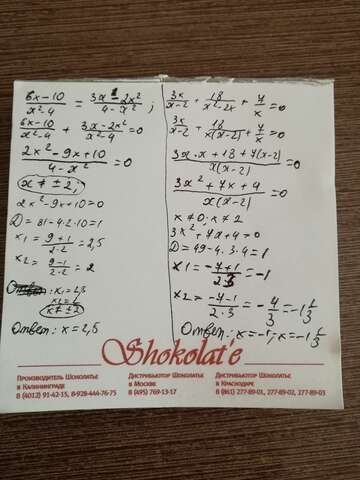 6x-10/x²-4 = 3x-2x²/4-x² ;
6x-10/x²-4 + 3x-2x²/x²-4 = 0
2x²-9x+10/4-x² = 0
x ≠ ±2;
2x²-9x+10=0
D = 81-4·2·10=1
x₁ = 9+1/2·2 = 2,5
x₂ = 9-1/2·2 = 2
x ≠ ±2
Ответ: x = 2,5
3x/x-2 + 18/x²-2x + 7/x = 0
3x/x-2 + 18/x(x-2) + 7/x = 0
3x·x+18+7(x-2)/x(x-2) = 0
3x²+7x+4/x(x-2) = 0
x ≠ 0; x ≠ 2
3x²+7x+4=0
D = 49-4·3·4=1
x1 = -7+1/2·3 = -1
x2 = -7-1/2·3 = -4/3 = -1 1/3
Ответ: x=-1; x=-1 1/3
Shokolat'e
Производитель Шоколатье
в Калининграде
8 (4012) 91-42-15, 8-928-444-76-75
Дистрибьютор Шоколатье
в Москве
8 (495) 769-13-17
Дистрибьютор Шоколатье
в Краснодаре
8 (861) 277-89-01, 277-89-02, 277-89-03